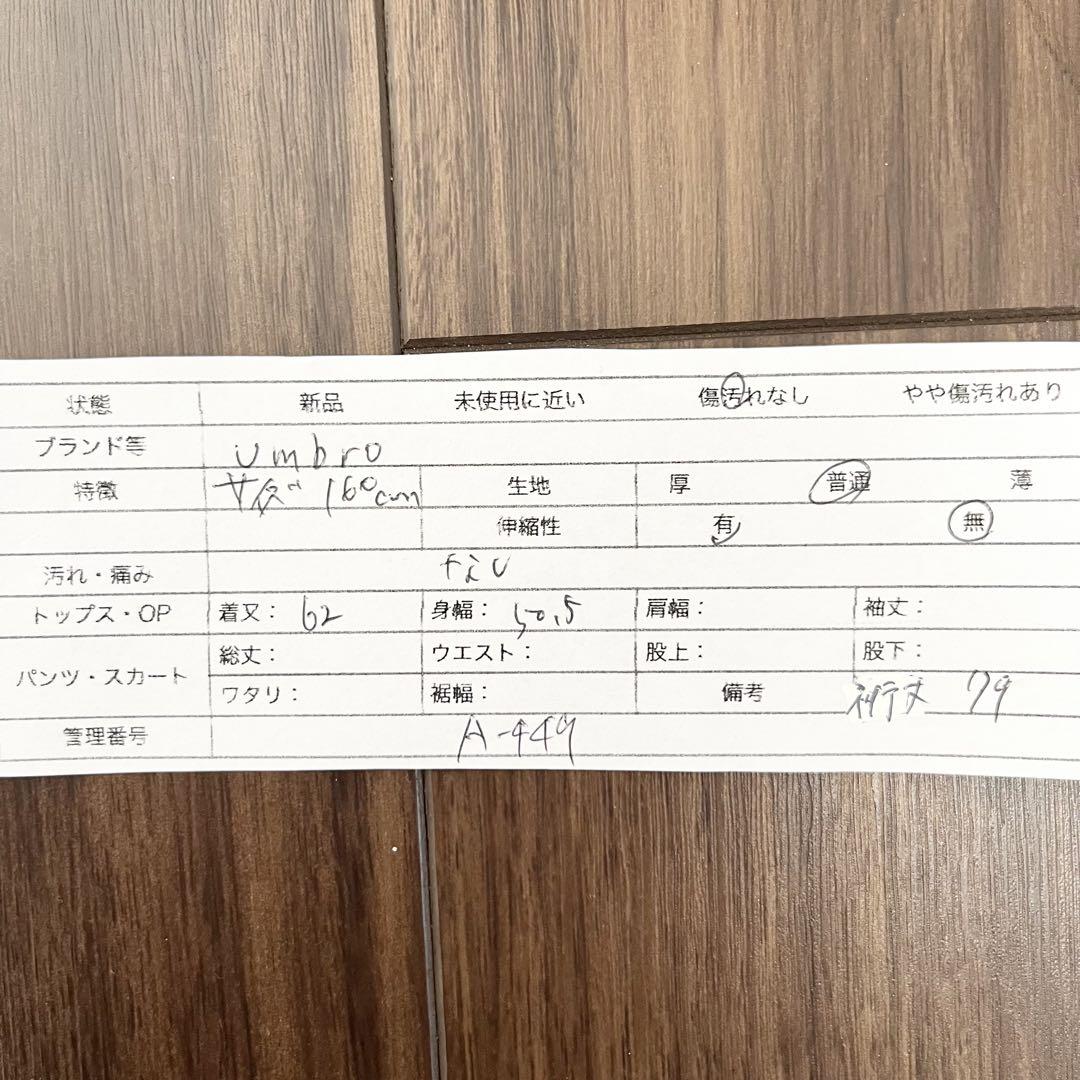 状態 新品 未使用に近い 傷汚れなし やや傷汚れあり
ブランド等 umbro
特徴 160cm 生地 厚 普通 薄
伸縮性 有 無
汚れ・痛み なし
トップス・OP 着又: 62 身幅: 50.5 肩幅: 袖丈:
パンツ・スカート 総丈: ウエスト: 股上: 股下:
ワタリ: 裾幅: 備考 裄丈 79
管理番号 A-449